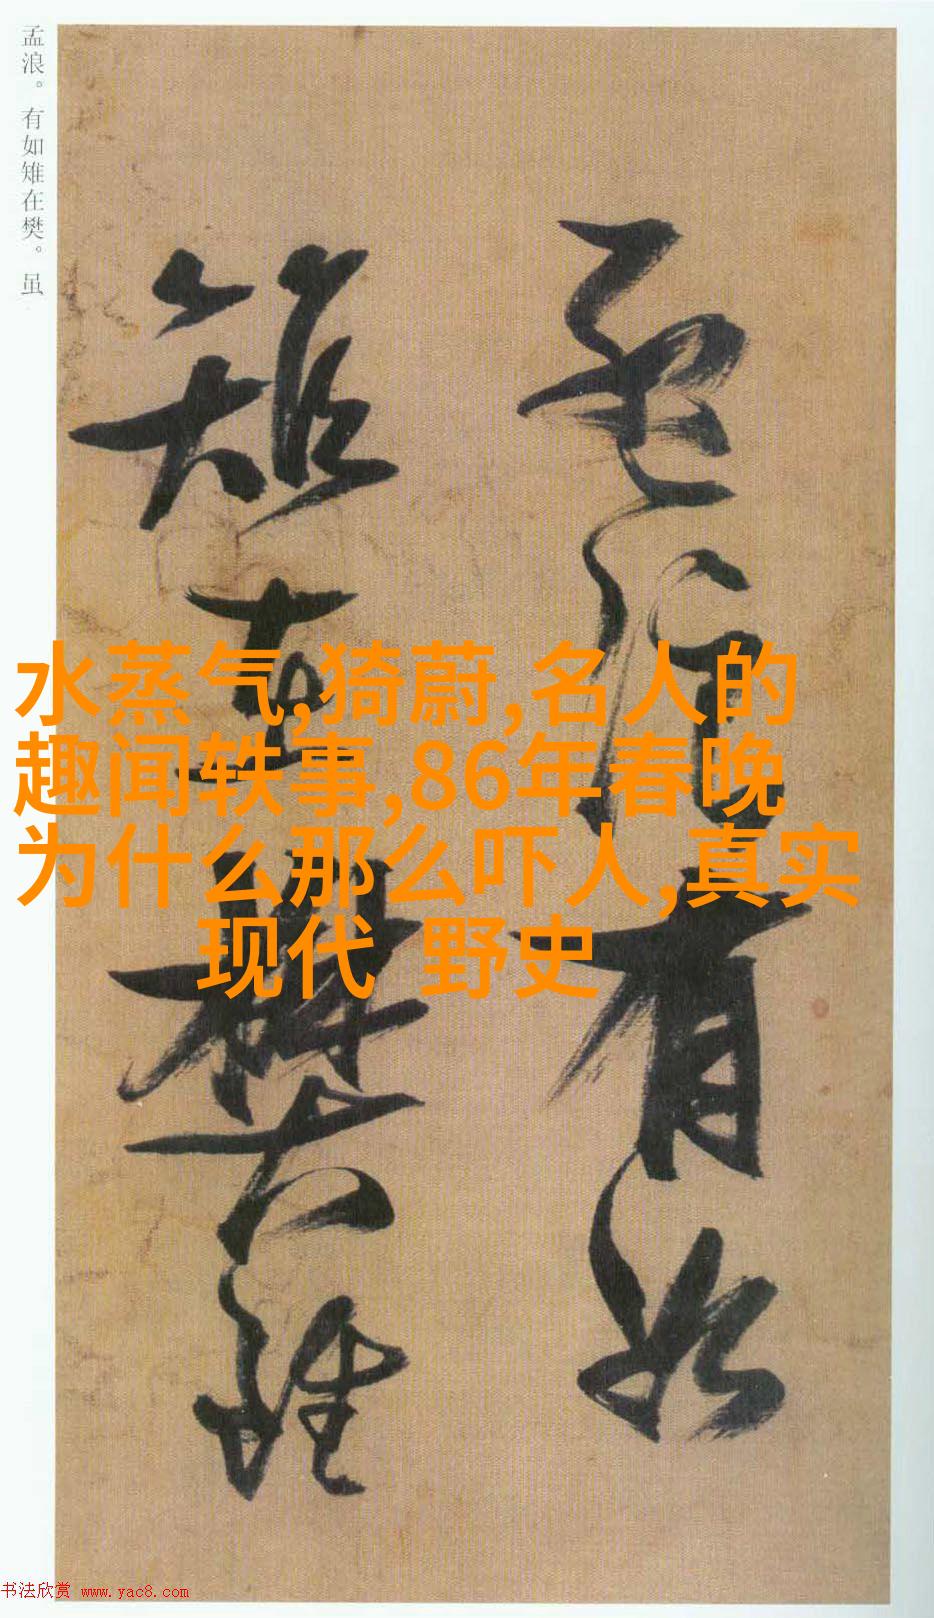 孟浪。有如雉在樊。虽
孟浪有如
雉在樊虽
水蒸气,猗蔚,名人的
趣闻轶事,86年春晚
为什么那么吓人,真实
现代 野史
书法欣赏 www.yac8.com